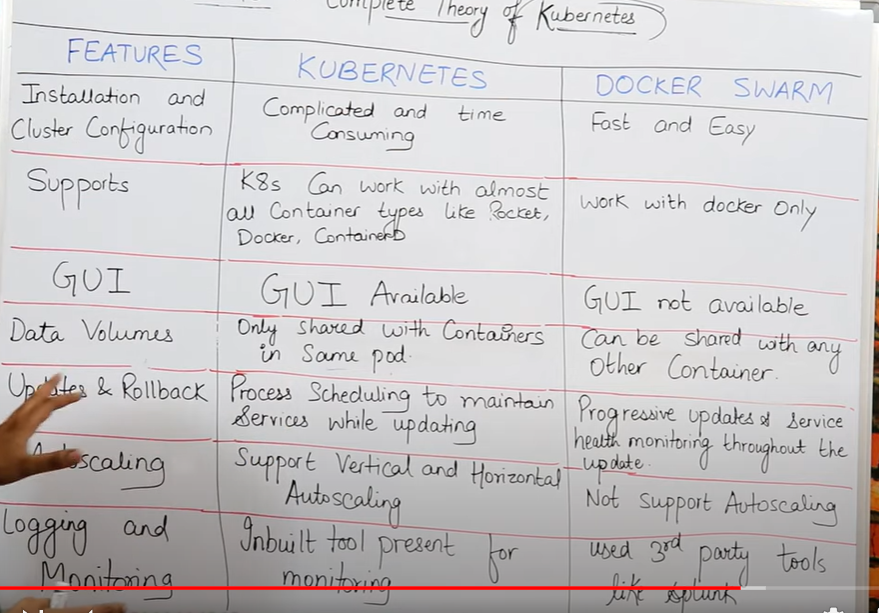 Complete Theory of Kubernetes
FEATURES
KUBERNETES
DOCKER SWARM
Installation and
Cluster Configuration
Complicated and time
Consuming
Fast and Easy
Supports
K8s Can work with almost
all Container types like Rocket,
Docker, ContainerD
work with docker Only
GUI
GUI Available
GUI not available
Data Volumes
Only shared with Containers
in Same pod.
Can be shared with any
Other Container.
Updates & Rollback
Process Scheduling to maintain
Services while updating
Progressive updates & Service
health monitoring throughout the
update.
Autoscaling
Support Vertical and Horizontal
Autoscaling
Not support Autoscaling
Logging and
Monitoring
Inbuilt tool present for
monitoring
used 3rd party tools
like splunk